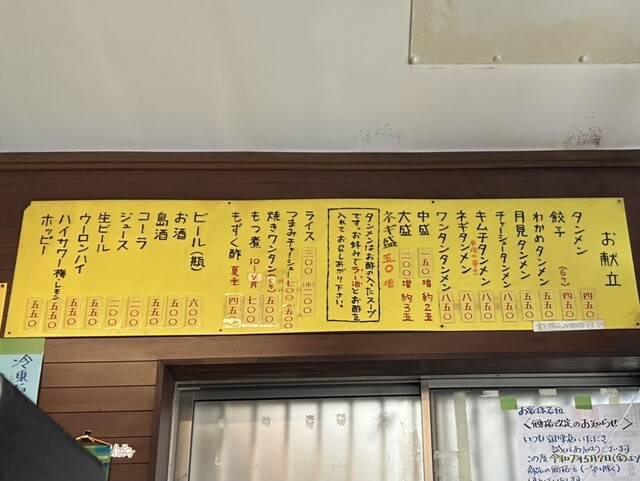 お献立
タンメン 四五〇
餃子 (6ヶ) 四五〇
わかめタンメン 五五〇
月見タンメン 五五〇
チャーシュータンメン 八五〇
キムチタンメン 八五〇
ネギタンメン 八五〇
ワンタンタンメン 八五〇
中盛 一五〇増 約2玉
大盛 二〇〇増 約3玉
ネギ盛 五〇増
タンメンはお酢の入ったスープ
です。お好みでラー油とお酢を
入れてお召しあがり下さい。
ライス 三〇〇 (小)二〇〇
つまみチャーシュー 七〇〇
焼きワンタン 五〇〇
もつ煮 10〜4月 七〇〇
もずく酢 夏季 四五〇
ビール(瓶) 六〇〇
お酒 五五〇
島酒 五五〇
コーラ 二〇〇
ジュース 二〇〇
生ビール 五五〇
ウーロンハイ 五五〇
ハイサワー 梅 レモン 五五〇
ホッピー 五五〇
冷凍
お客様各位
<価格改定のお知らせ>
いつも御来店いただき
誠にありがとうございます
この度 令和7年5月9日(金)より
商品の価格を(一部を除く)